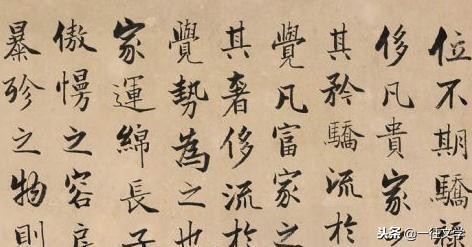 位不期驕
侈凡貴家
其矜驕流於
覺凡富家之
其奢侈流於
覺勢為之也
家運綿長子
傲慢之容
暴殄之物則
头条 @一往文学